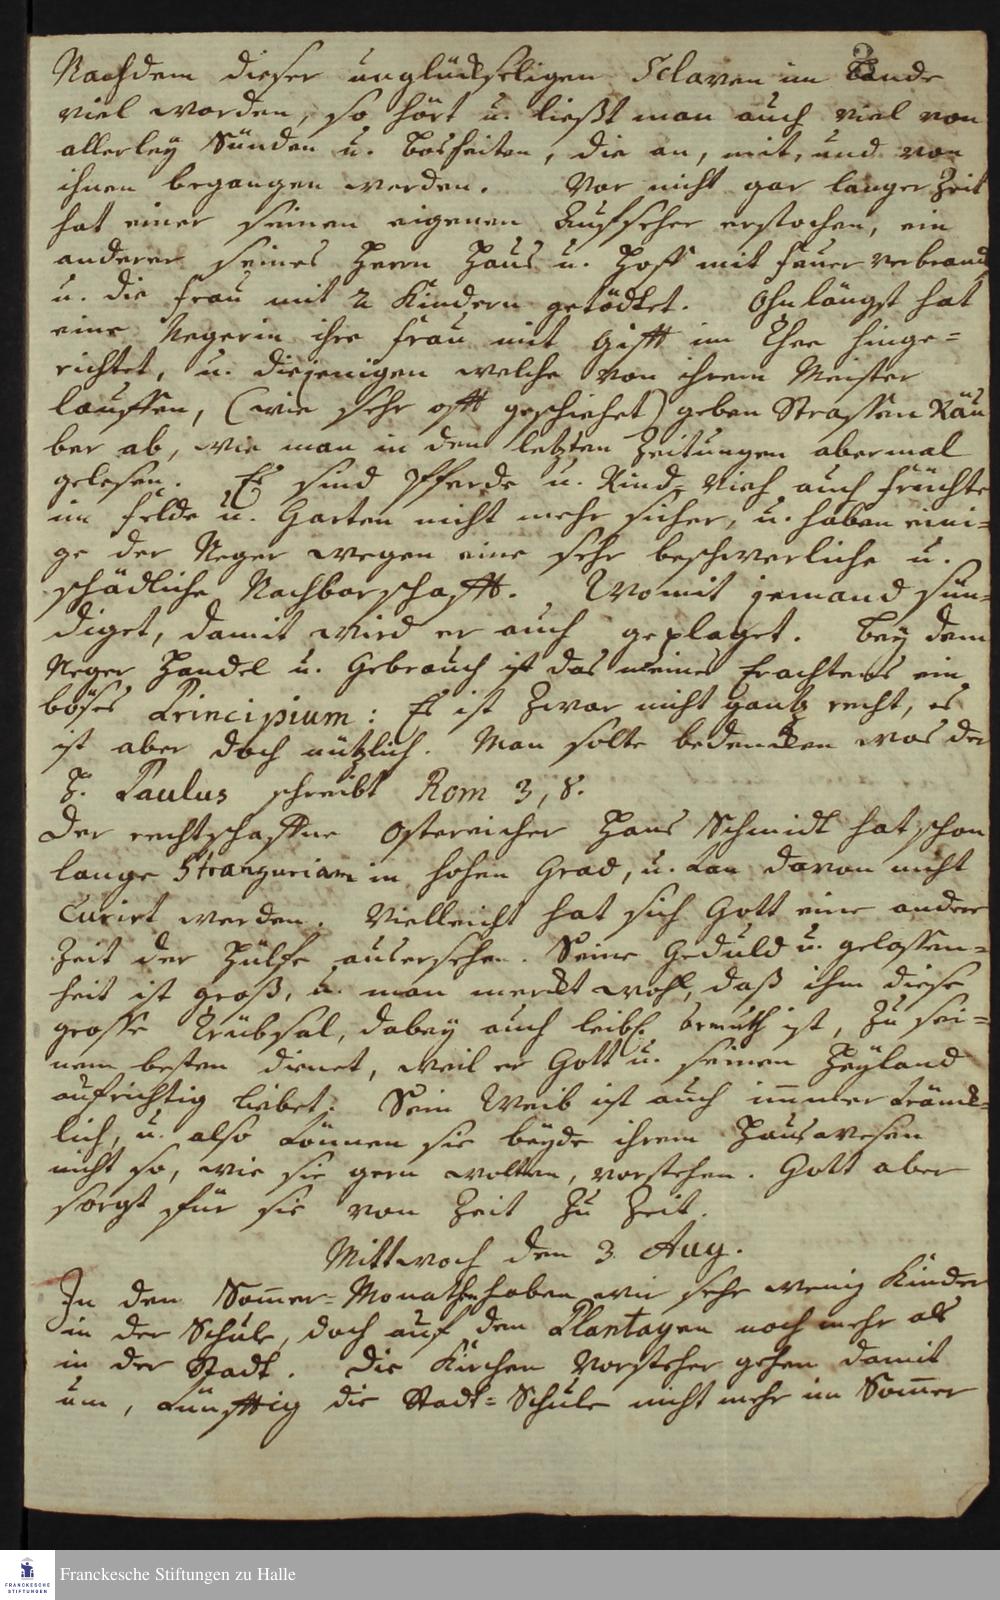 Nachdem dieser unglückseligen Sclaven im Lande
viel worden, so hört u. ließt man auch viel von
allerley Sünden u. Bosheiten, die an, mit, und von
ihnen begangen werden. Vor nicht gar langer Zeit
hat einer seinen eigenen Aufseher erstochen, ein
anderer seines Herrn Haus u. Hoff mit Feuer verbrand
u. die Frau mit 2 Kindern getödtet. Ohnlängst hat
eine Negerin ihre Frau mit Gifft im Thee hinge=
richtet, u. diejenigen welche von ihrem Meister
lauffen, (wie sehr offt geschiehet) geben Strassen Räu
ber ab, wie man in den letzten Zeitungen abermal
gelesen. Es sind Pferde u. Rind Vieh auch Früchte
im Felde u. Garten nicht mehr sicher, u. haben eini=
ge der Neger wegen eine sehr beschwerliche u.
schädliche Nachbarschafft. Womit jemand sün=
diget, damit wird er auch geplaget. Bey dem
Neger Handel u. Gebrauch ist das meines Erachtens ein
böses Principium: Es ist zwar nicht gantz recht, es
ist aber doch nützlich. Man solte bedencken was der
H. Paulus schreibt Rom 3, 8.
Der rechtschaffne Ostereicher Hans Schmidt hat schon
lange Stranguriam in hohen Grad, u. kan davon nicht
Curirt werden. Vielleicht hat sich Gott eine andere
Zeit der Hülfe ausersehen. Seine Geduld u. gelassen=
heit ist groß, u. man merckt wohl, daß ihm diese
grosse Trübsal, dabey auch leibl. armuth ist, zu sei=
nem besten dienet, weil er Gott u. seinen Heyland
aufrichtig liebet. Sein Weib ist auch immer kränck=
lich, u. also können sie beyde ihrem Hauswesen
nicht so, wie sie gern wolten, vorstehen. Gott aber
sorgt für sie von Zeit zu Zeit.
Mittwoch den 3. Aug.
In den Sommer=Monathen haben wir sehr wenig Kinder
in der Schule, doch auf den Plantagen noch mehr als
in der Stadt. Die Kirchen Vorsteher gehen damit
um, künfftig die Stadt=Schule nicht mehr im Sommer
FRANCKESCHE
STIFTUNGEN
Franckesche Stiftungen zu Halle